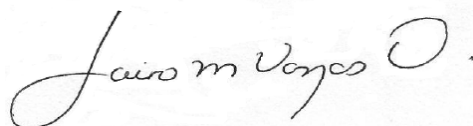 Jairo M Vargas O.